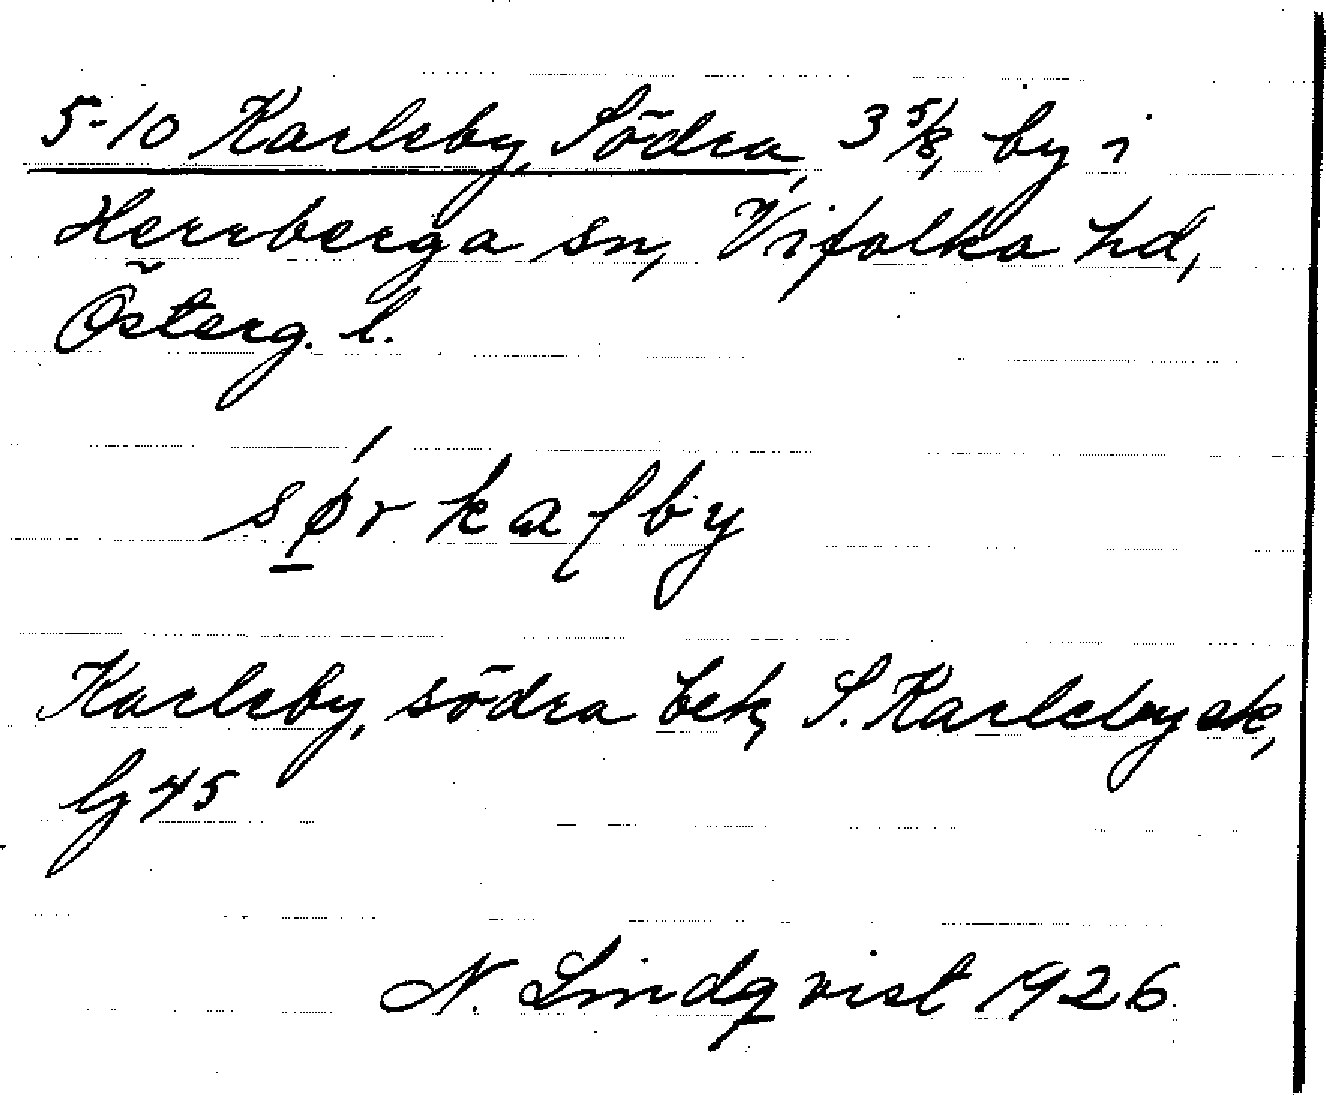 5-10 Karleby, Södra, 3 5/8, by i
Herrberga sn, Vifolka hd,
Österg. l.
spɵrkaſby
Karleby, södra bek, S. Karleby sk,
G 45
N. Lindqvist 1926